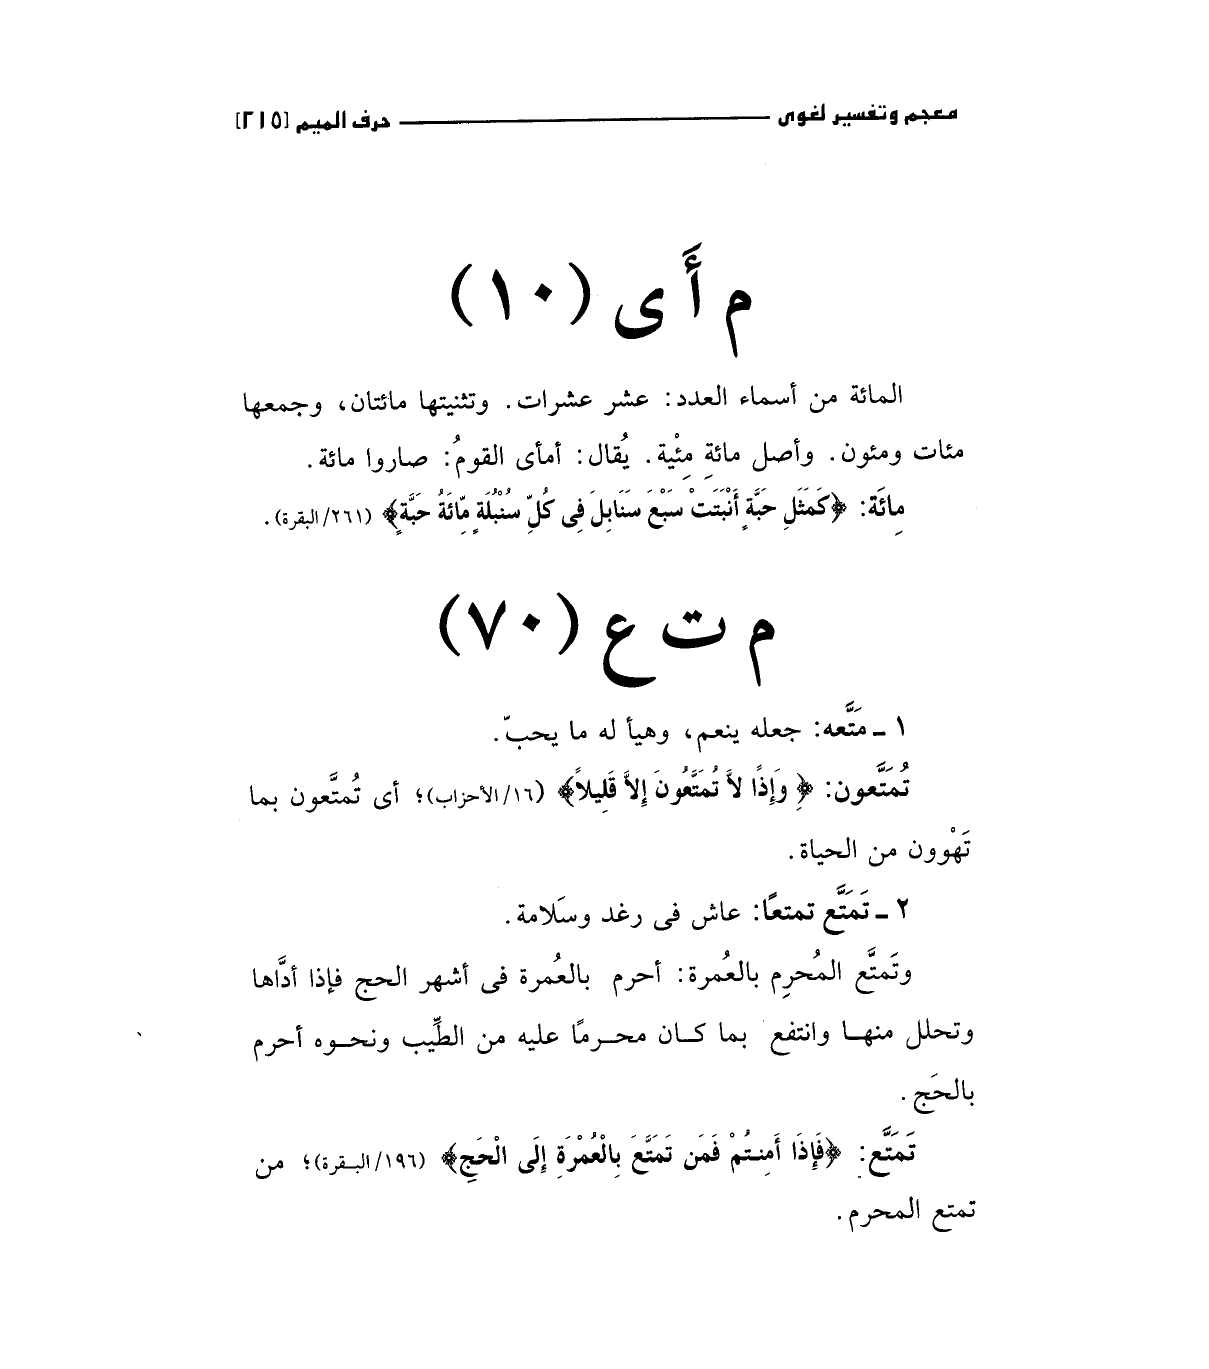 معجم وتفسير لغوى
حرف الميم [٢١٥]
م أَ ى (١٠)
المائة من أسماء العدد: عشر عشرات. وتثنيتها مائتان، وجمعها
مئات ومئون. وأصل مائةِ مِئْية. يُقال: أمأى القومُ: صاروا مائة.
مِائَة: ﴿كَمَثَلِ حَبَّةٍ أَنْبَتَتْ سَبْعَ سَنَابِلَ فِى كُلِّ سُنْبُلَةٍ مِّائَةُ حَبَّةٍ﴾ (٢٦١/البقرة).
م ت ع (٧٠)
١ ـ مَتَّعه: جعله ينعم، وهيأ له ما يحبّ.
تُمَتَّعُون: ﴿وَإِذًا لاَّ تُمَتَّعُونَ إِلاَّ قَلِيلاً﴾ (١٦/الأحزاب)؛ أى تُمتَّعون بما
تَهْوون من الحياة.
٢ ـ تَمَتَّع تمتعًا: عاش فى رغد وسَلامة.
وتَمتَّع المُحرِم بالعُمرة: أحرم بالعُمرة فى أشهر الحج فإذا أدَّاها
وتحلل منهـا وانتفع بما كـان محـرمًا عليه من الطِّيب ونحـوه أحرم
بالحَج.
تَمَتَّع: ﴿فَإِذَا أَمِنـتُمْ فَمَن تَمَتَّعَ بِالْعُمْرَةِ إِلَى الْحَجِ﴾ (١٩٦/البـقرة)؛ من
تمتع المحرم.